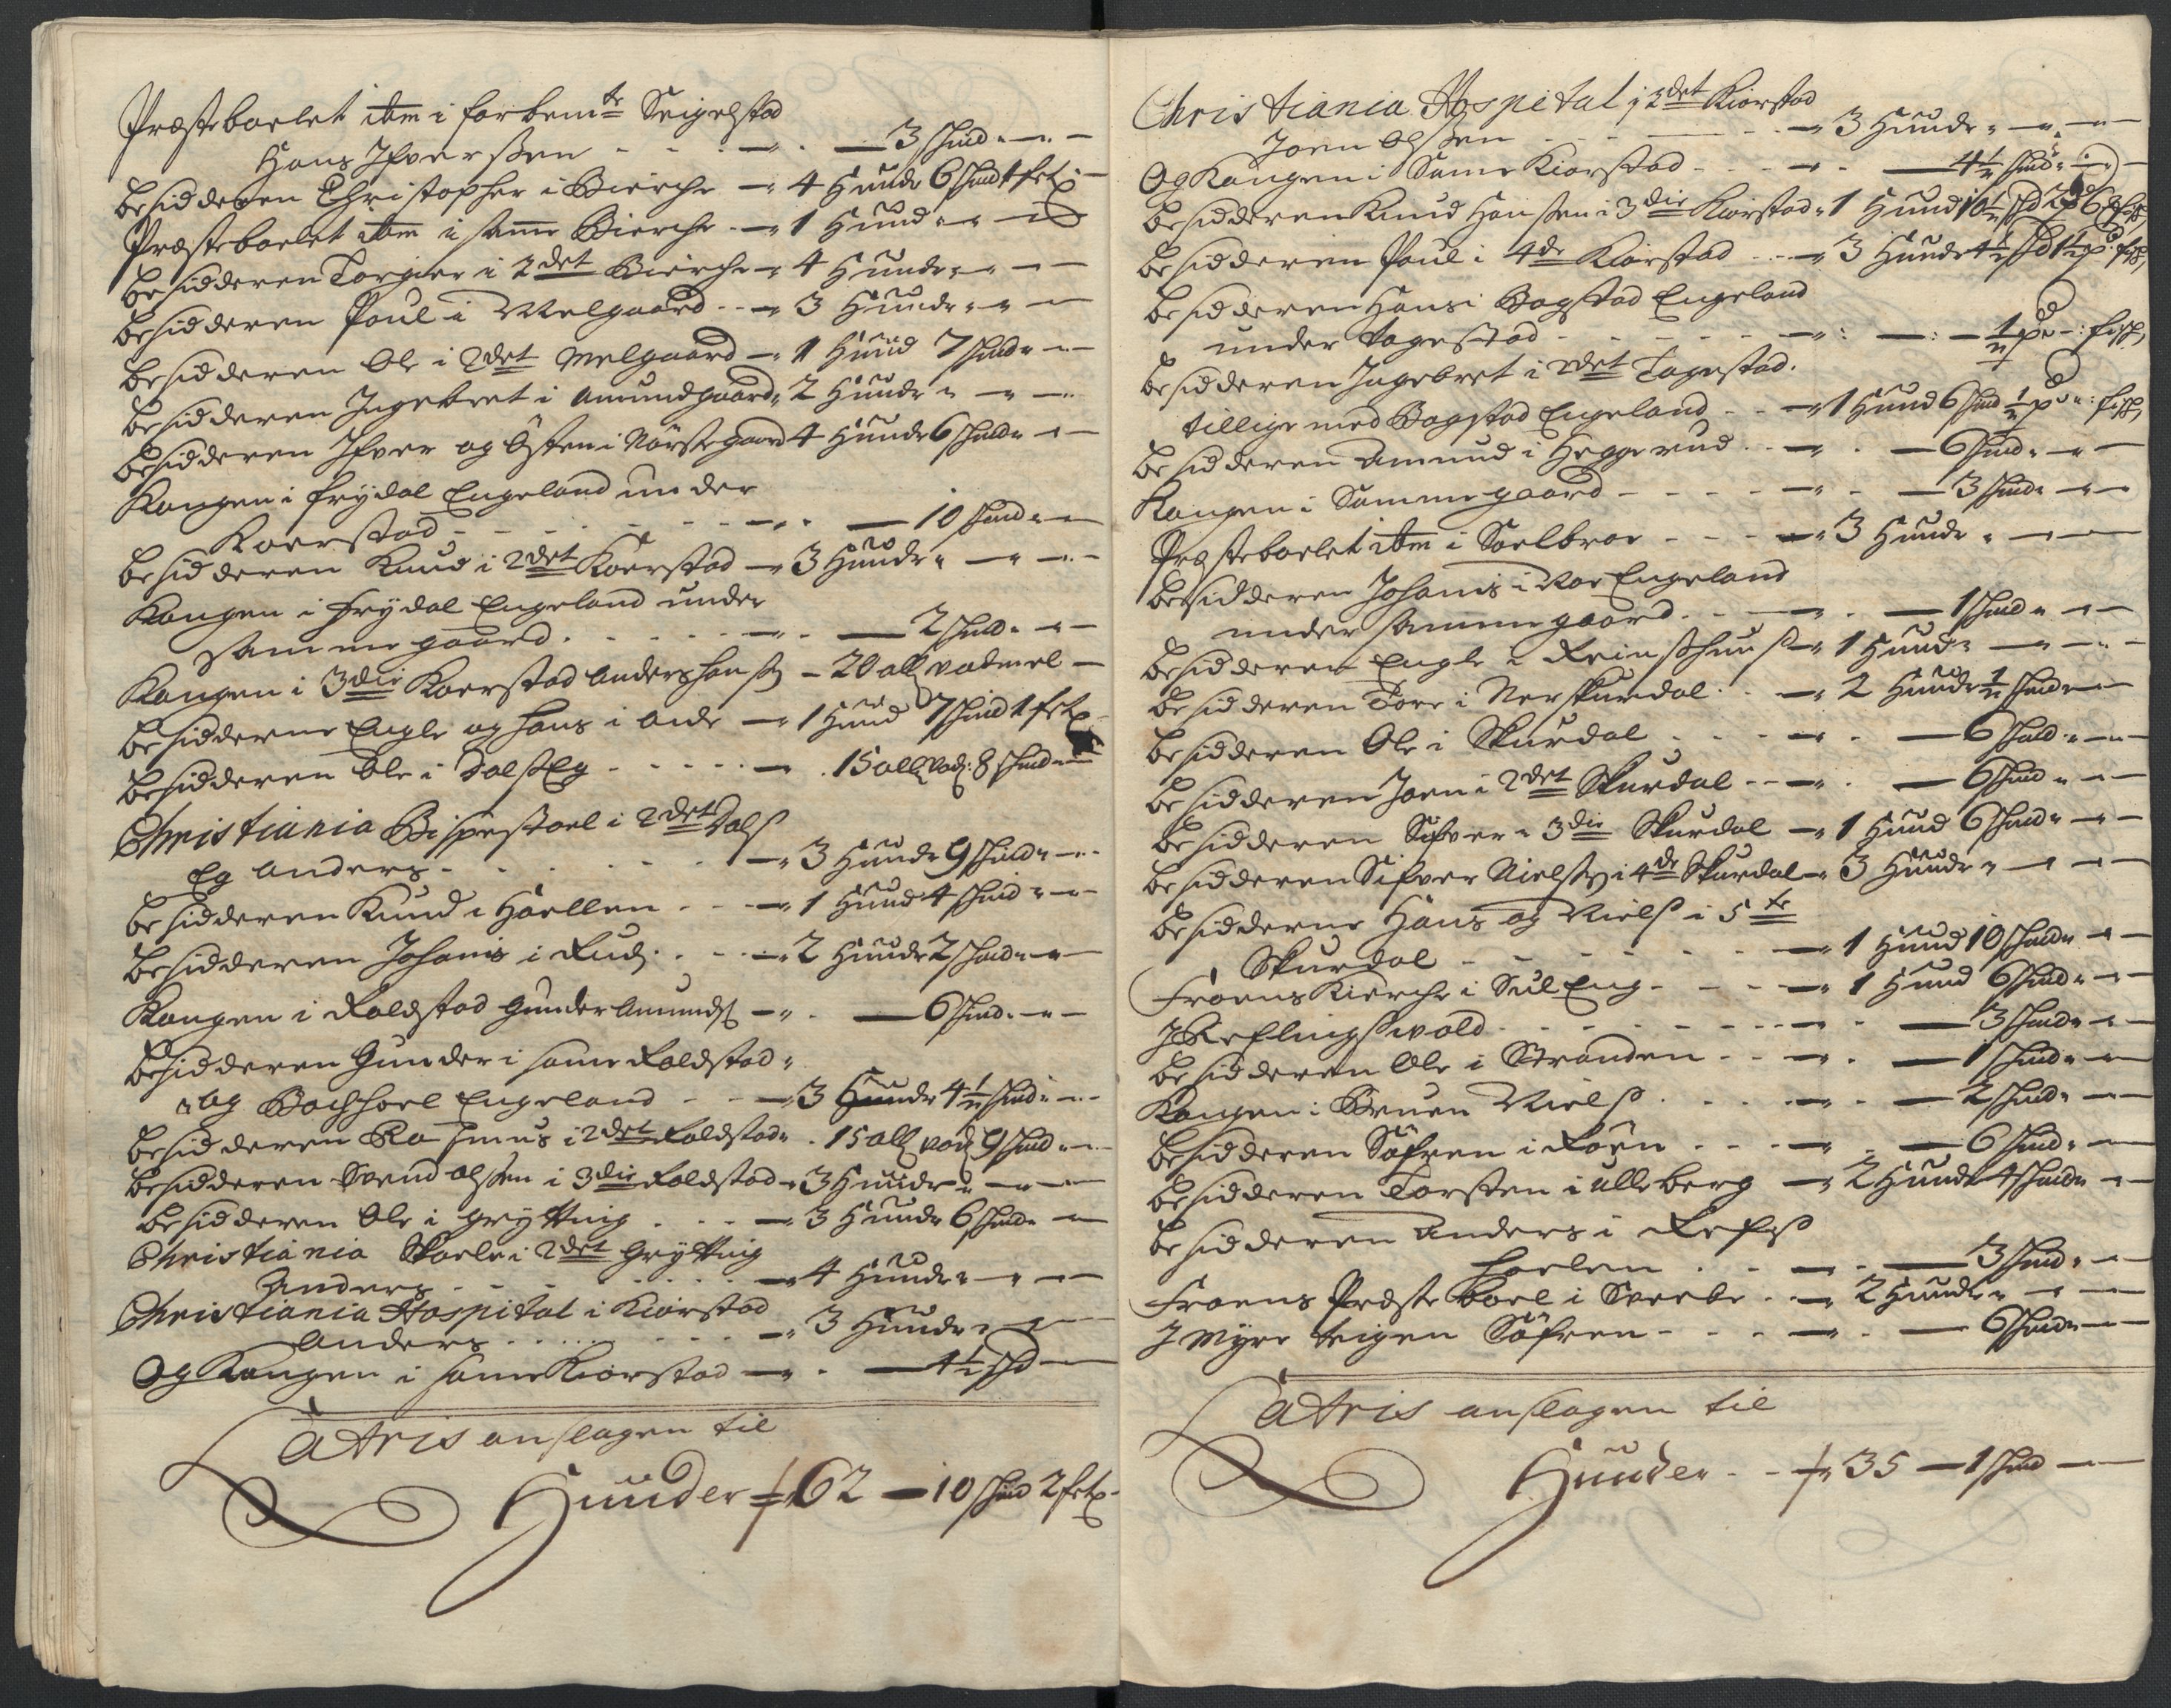 Præsteboelet ibm i forbemte Seigelstad
Hans Ifverssen - - - 3 skind
besidderen Christopher i Bierche - 4 Hunde 6 skind 1 fet
Præsteboelet ibm i samme Bierche - 1 Hund
besidderen Torgier i 2det Bierche - 4 Hunde
besidderen Poul i Melgaard - 3 Hunde
besidderen Ole i 2det Melgaard - 1 Hund 7 skind
besidderen Ingebret i Amundgaard 2 Hunde
besidderen Ifver og Østen i Nørstegaard 4 Hunde 6 skind
Kongen i frydal Engeland under
Koerstad - - - 10 skind
besidderen Knud i 2det Koerstad - 3 Hunde
Kongen i frydal Engeland under
samme gaard - - - 2 skind
Kongen i 3die Koerstad Anders Hanss - 20 all vadmel
besidderne Engle og Hans i Aide - 1 Hund 7 skind 1 fet
besidderen Ole i DalsEg - - - 15 all vad: 8 skind
Christiania Bispestoel i 2det Dals
Eg Anders - - - 3 Hunde 9 skind
besidderen Knud i Haellen - - 1 Hund 4 skind
besidderen Johanis i Rud - - 2 Hunde 2 skind
Kongen i Roldstad Gunder Amunds - 6 skind
besidderen Gunder i same Roldstad
og Bachhoel Engeland - - 3 Hunde 4½ skind
besidderen Rasmus i 2det Roldstad 15 all vad 9 skind
besidderen Svend Olssen i 3die Roldstad 3 Hunde
besidderen Ole i Gryttnig - - 3 Hunde 6 skind
Christiania Skoele i 2det Gryttnig
Anders - - - 4 Hunde
Christiania Hospital i Kiørstad
Anders - - - 3 Hunde
Og Kongen i same Kiørstad - 4½ skd
Latris anslagen til
Hunder 62 - 10 skind 2 fet
Christiania Hospital i 2det Kiørstad
Joen Olssen - - - 3 Hunde
Og Kongen i Same Kiørstad - - 4½ skind
besidderen Knud Hanssen i 3die Kiørstad 1 Hund 10½ skd
besidderen Poul i 4de Kiørstad - 3 Hunde 4½ skd 1½ pd fisk
besidderen Hans i Bagstad Engeland
under Tagestad - - - ½ pd: fisk
besidderen Ingebret i 2det Tagestad.
tillige med Bagstad Engeland - - 1 Hund 6 skind ½ pd: fisk
besidderen Amund i Heggerud - - 6 skind
Kongen i Samme gaard - - - 3 skind
Præsteboelet ibm i Soelbroe - - 3 Hunde
besidderen Johanis i Roe Engeland
under samme gaard - - - 1 skind
besidderen Engle i Reimsshuus - 1 Hund
besidderen Tore i Nerskurdal - 2 Hunde ½ skind
besidderen Ole i Skurdal - - - 6 skind
besidderen Joen i 2det Skurdal - - 6 skind
besidderen Sifver i 3die Skurdal - 1 Hund 6 skind
besidderen Sifver Nielss i 4de Skurdal 3 Hunde
besidderne Hans og Niels i 5te
Skurdal - - - 1 Hund 10 skind
Froens Kierche i SulEng - - - 1 Hund 6 skind
I Reflingsvold - - - 3 skind
besidderen Ole i Stranden - - 1 skind
Kongen i Bruen Niels - - - 2 skind
besidderen Søfren i Roen - - 6 skind
besidderen Torsten i Ulleberg - 2 Hunde 4 skind
besidderen Anders i Refs
hoelen - - - 3 skind
Froens Præsteboel i Sverbe - - 2 Hunde
I Myre teigen Søfren - - - 6 skind
Latris anslagen til
Hunder - - 35 - 1 skind